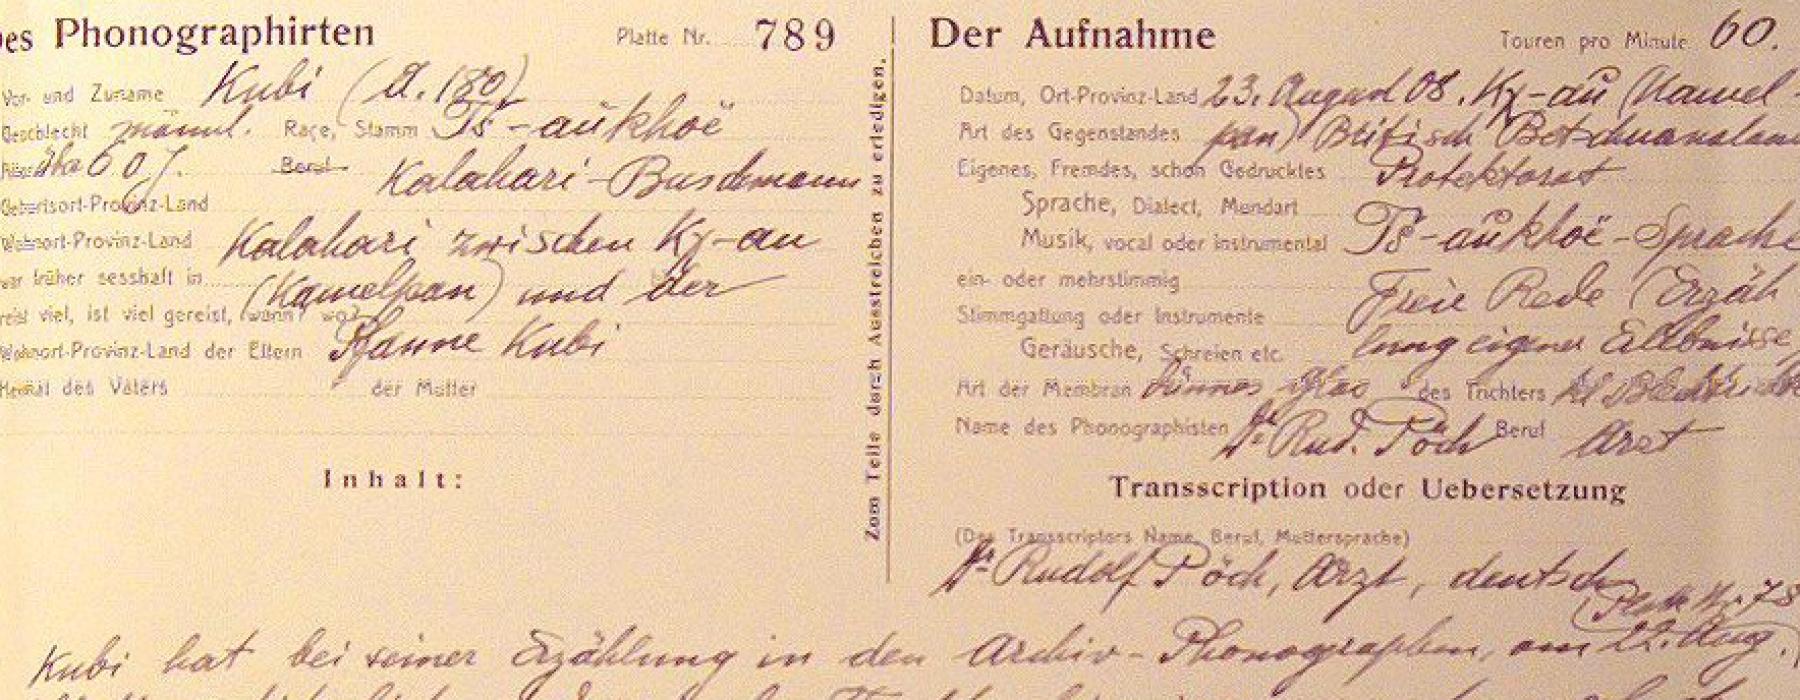 des Phonographirten Platte Nr. 789
Vor- und Zuname Kubi (A. 180)
Geschlecht männl. Raçe, Stamm Tš-aukhoë
60 J. Beruf Kalahari-Buschmann
Geburtsort-Provinz-Land
Wohnort-Provinz-Land Kalahari zwischen Kχ-au
war früher sesshaft in (Kamelpan) und der
reist viel, ist viel gereist, wann? wo?
Wohnort-Provinz-Land der Eltern Pfanne Kubi
Heimat des Vaters der Mutter
Inhalt:
Zum Teile durch Ausstreichen zu erledigen.
Der Aufnahme Touren pro Minute 60.
Datum, Ort-Provinz-Land 23. August 08. Kχ-au (Kamel-
Art des Gegenstandes pan) Britisch Betschuanaland
Eigenes, Fremdes, schon Gedrucktes Protektorat
Sprache, Dialect, Mundart
Musik, vocal oder instrumental Tš-aukhoë-Sprache
ein- oder mehrstimmig Freie Rede (Erzäh
Stimmgattung oder Instrumente
Geräusche, Schreien etc. lung eigener Erlebnisse
Art der Membran dünnes Glas des Trichters kl
Name des Phonographisten Dr Rud. Pöch Beruf Arzt
Transscription oder Uebersetzung
(Des Transscriptors Name, Beruf, Muttersprache)
Dr Rudolf Pöch, Arzt, deutsch
(Platte Nr. 78
Kubi hat bei seiner Erzählung in den Archiv-Phonographen, am 22. Aug.